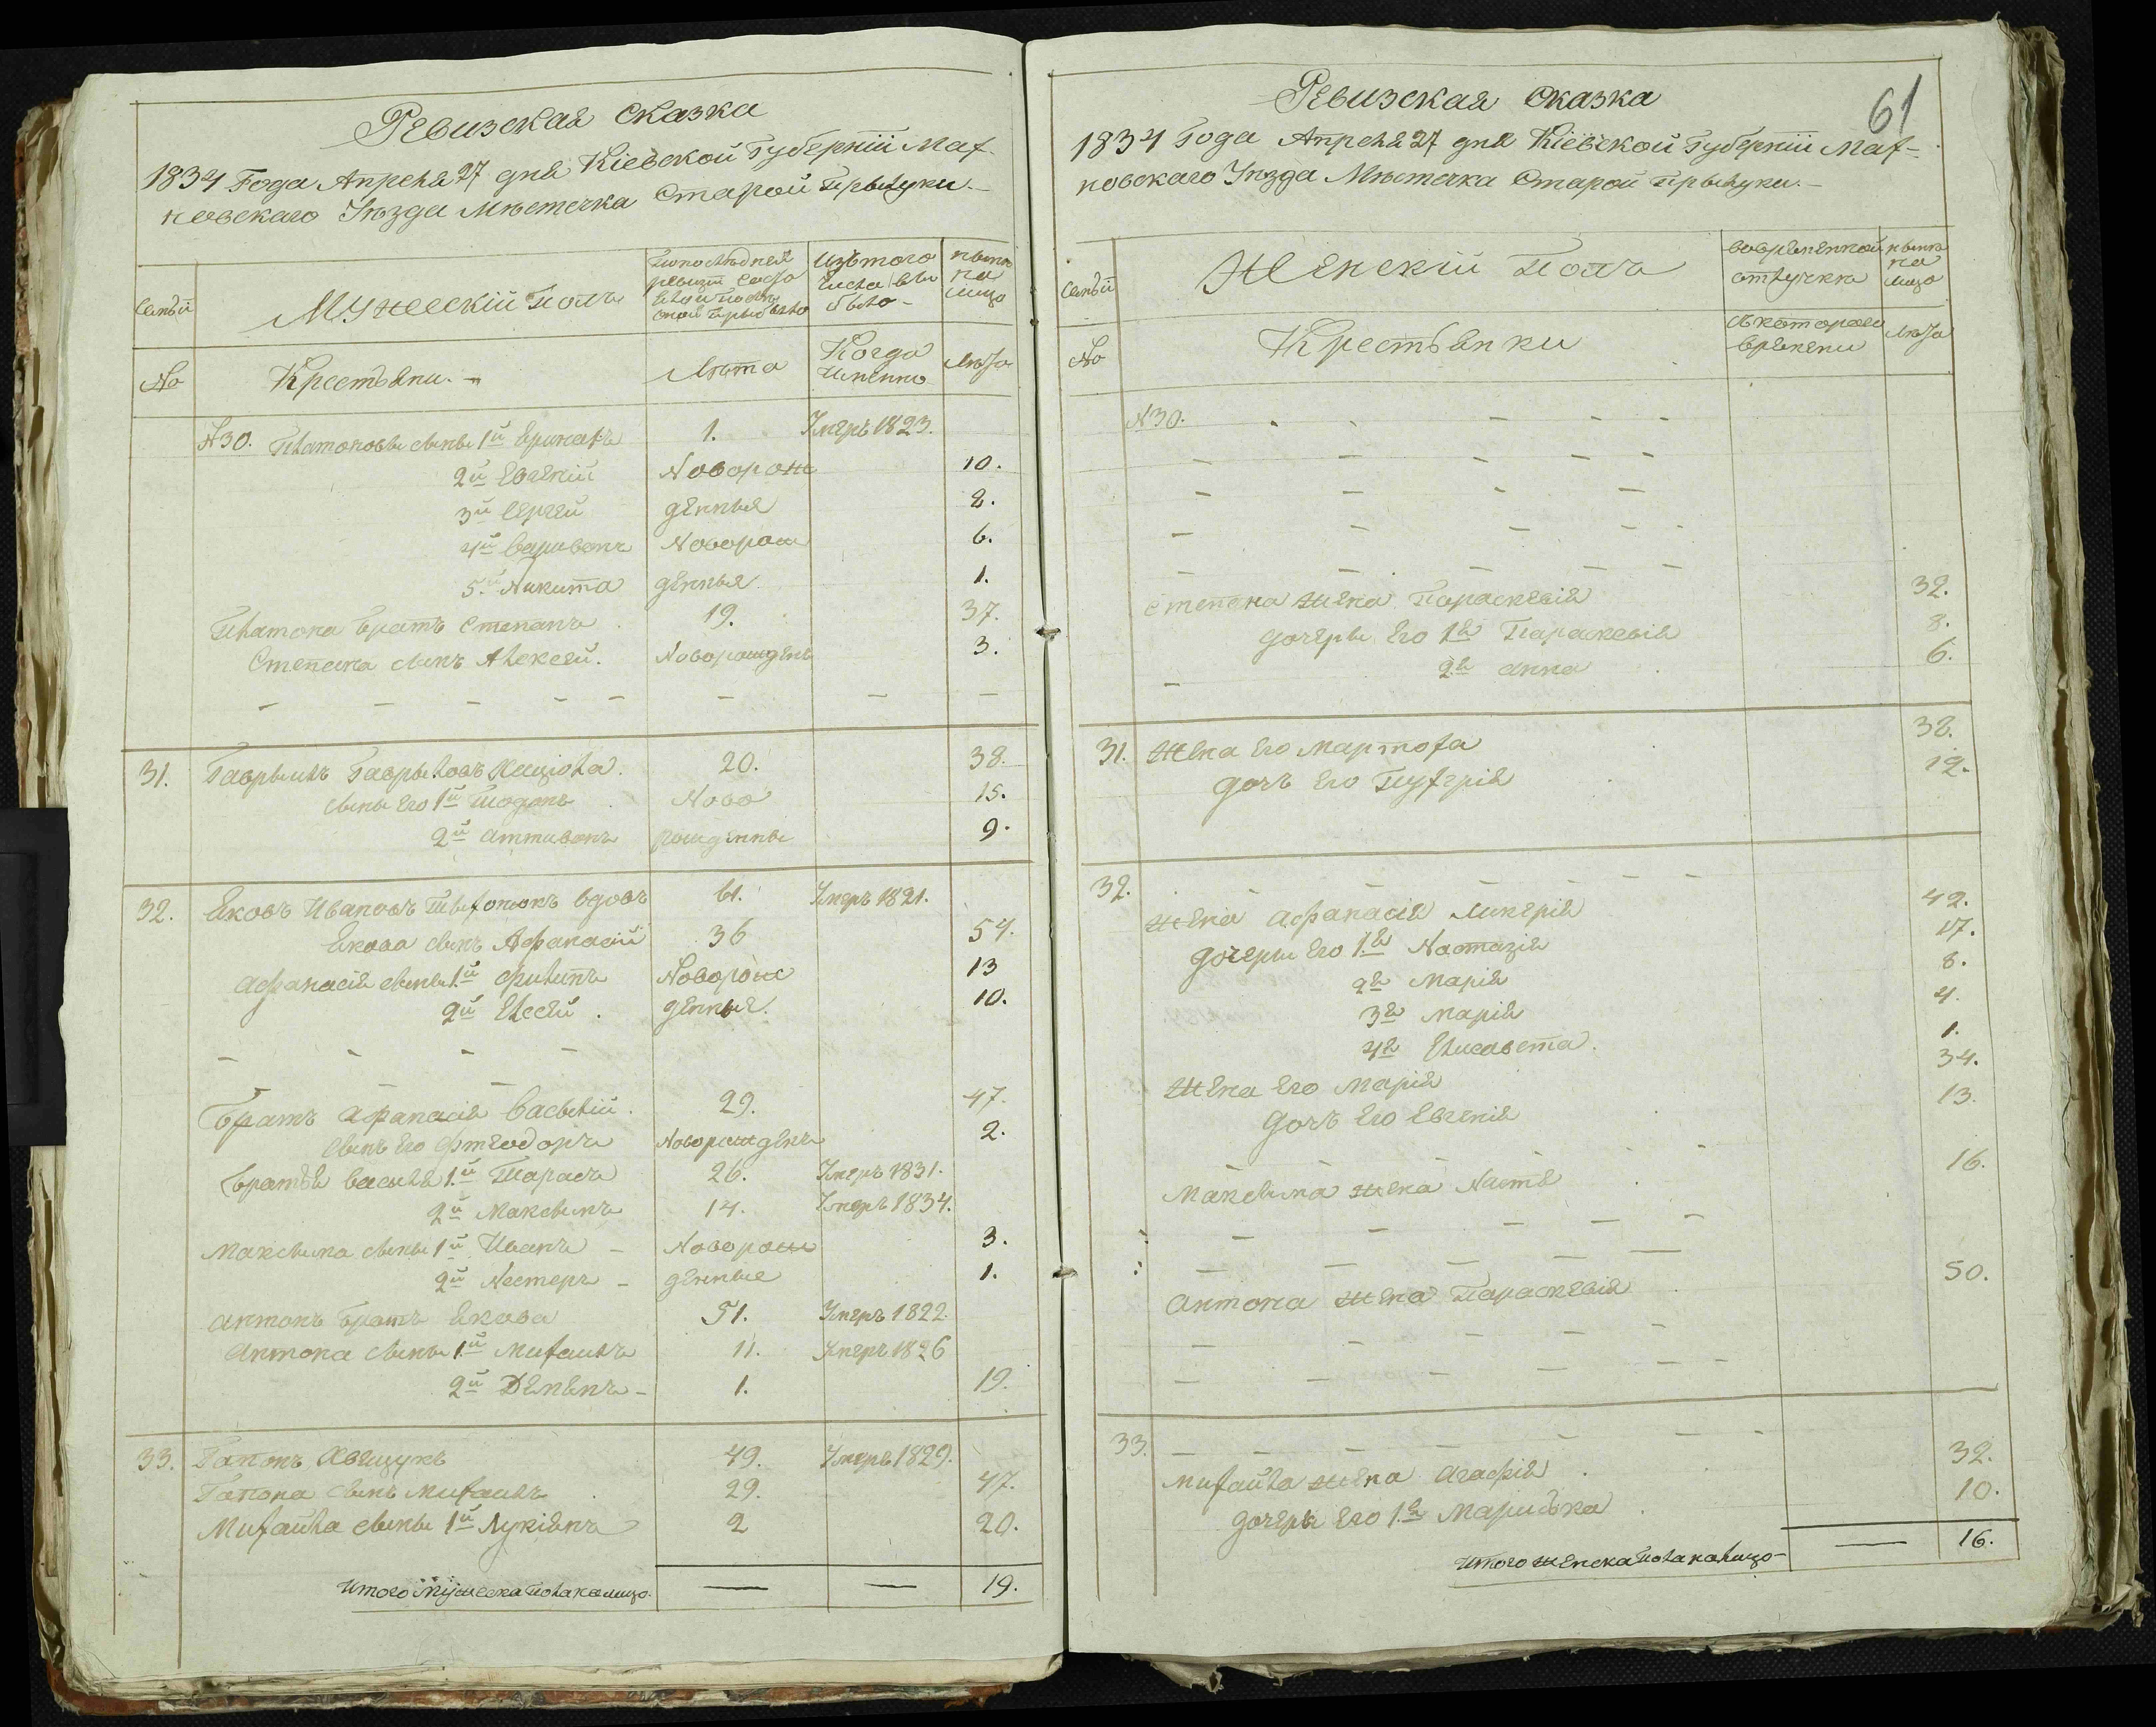 Ревизская сказка
1834 Года Апреля 27 дня Кіевской Губерніи Мах-
новскаго Уезда Мѣстечка Старой Прылуки.-
Семьи
Мужескій полъ
по последней ревизіи состояло и после оной прыбыло
изъ того числа выбыло
ныне на лицо
№
Крестьяни.-
Лѣта
Когда именно
Лѣта
№30. Платоновы сыны 1й 1. Умеръ 1823.
2й Евгеній Новорож 10.
3й Сергей денныя 8.
4й Новорож 6.
5й Никита денныя 1.
Платона братъ Степанъ 19. 37.
Степана сынъ Алексей. Новорожденъ 3.
31. Гаврыилъ Гаврыловъ 20. 38.
сыны Его 1й Ново 15.
2й рожденны 9.
32. Яковъ Ивановъ вдовъ 61. Умеръ 1821.
Якова сынъ Афанасій 36 54.
Афанасія сыны 1й Филипъ Новорож 13
2й Елесей. денныя. 10.
Братъ Афанасія Васылій. 29. 47.
сынъ Его Фтеодоръ Новорожденъ 2.
Братья Васыля 1й Тарасъ 26. Умеръ 1831.
2й Максымъ 14. Умеръ 1834.
Максыма сыны 1й Иванъ - Новорож 3.
2й Нестеръ - денные 1.
Антонъ братъ Якова 51. Умеръ 1822.
Антона сыны 1й Михаилъ 11. Умеръ 1826
2й Деменъ - 1. 19.
33. Гапонъ 49. Умеръ 1829.
Гапона сынъ Михаилъ 29. 47.
Михайла сыны 1й Лукіянъ 2 20.
Итого Мужеска пола налицо. — — 19.
61
Ревизская сказка
1834 Года Апреля 27 дня Кіевской Губерніи Мах-
новскаго Уезда Мѣстечка Старой Прылуки.-
Семьи
Женскій полъ
во временной отлучки
ныне на лицо
№
Крестьянки
съ котораго времени
Лѣта
№30.
Степана жена Параскевія 32.
дочеры Его 1я Параскевія 8.
2я Анна 6.
31. Жена Его Мартоха 38.
дочъ Его 12.
32.
жена Афанасія Ликерія 42.
дочеры Его 1я Настазія 17.
2я Марія 8.
3я Марія 4.
4я Елисавета. 1.
Жена Его Марія 34.
дочъ Его Евгенія 13.
Максыма жена Настя 16.
Антона жена Параскевія 50.
33.
Михайла жена Агафія 32.
дочеры Его 1я Марийка 10.
Итого женска пола налицо- — 16.